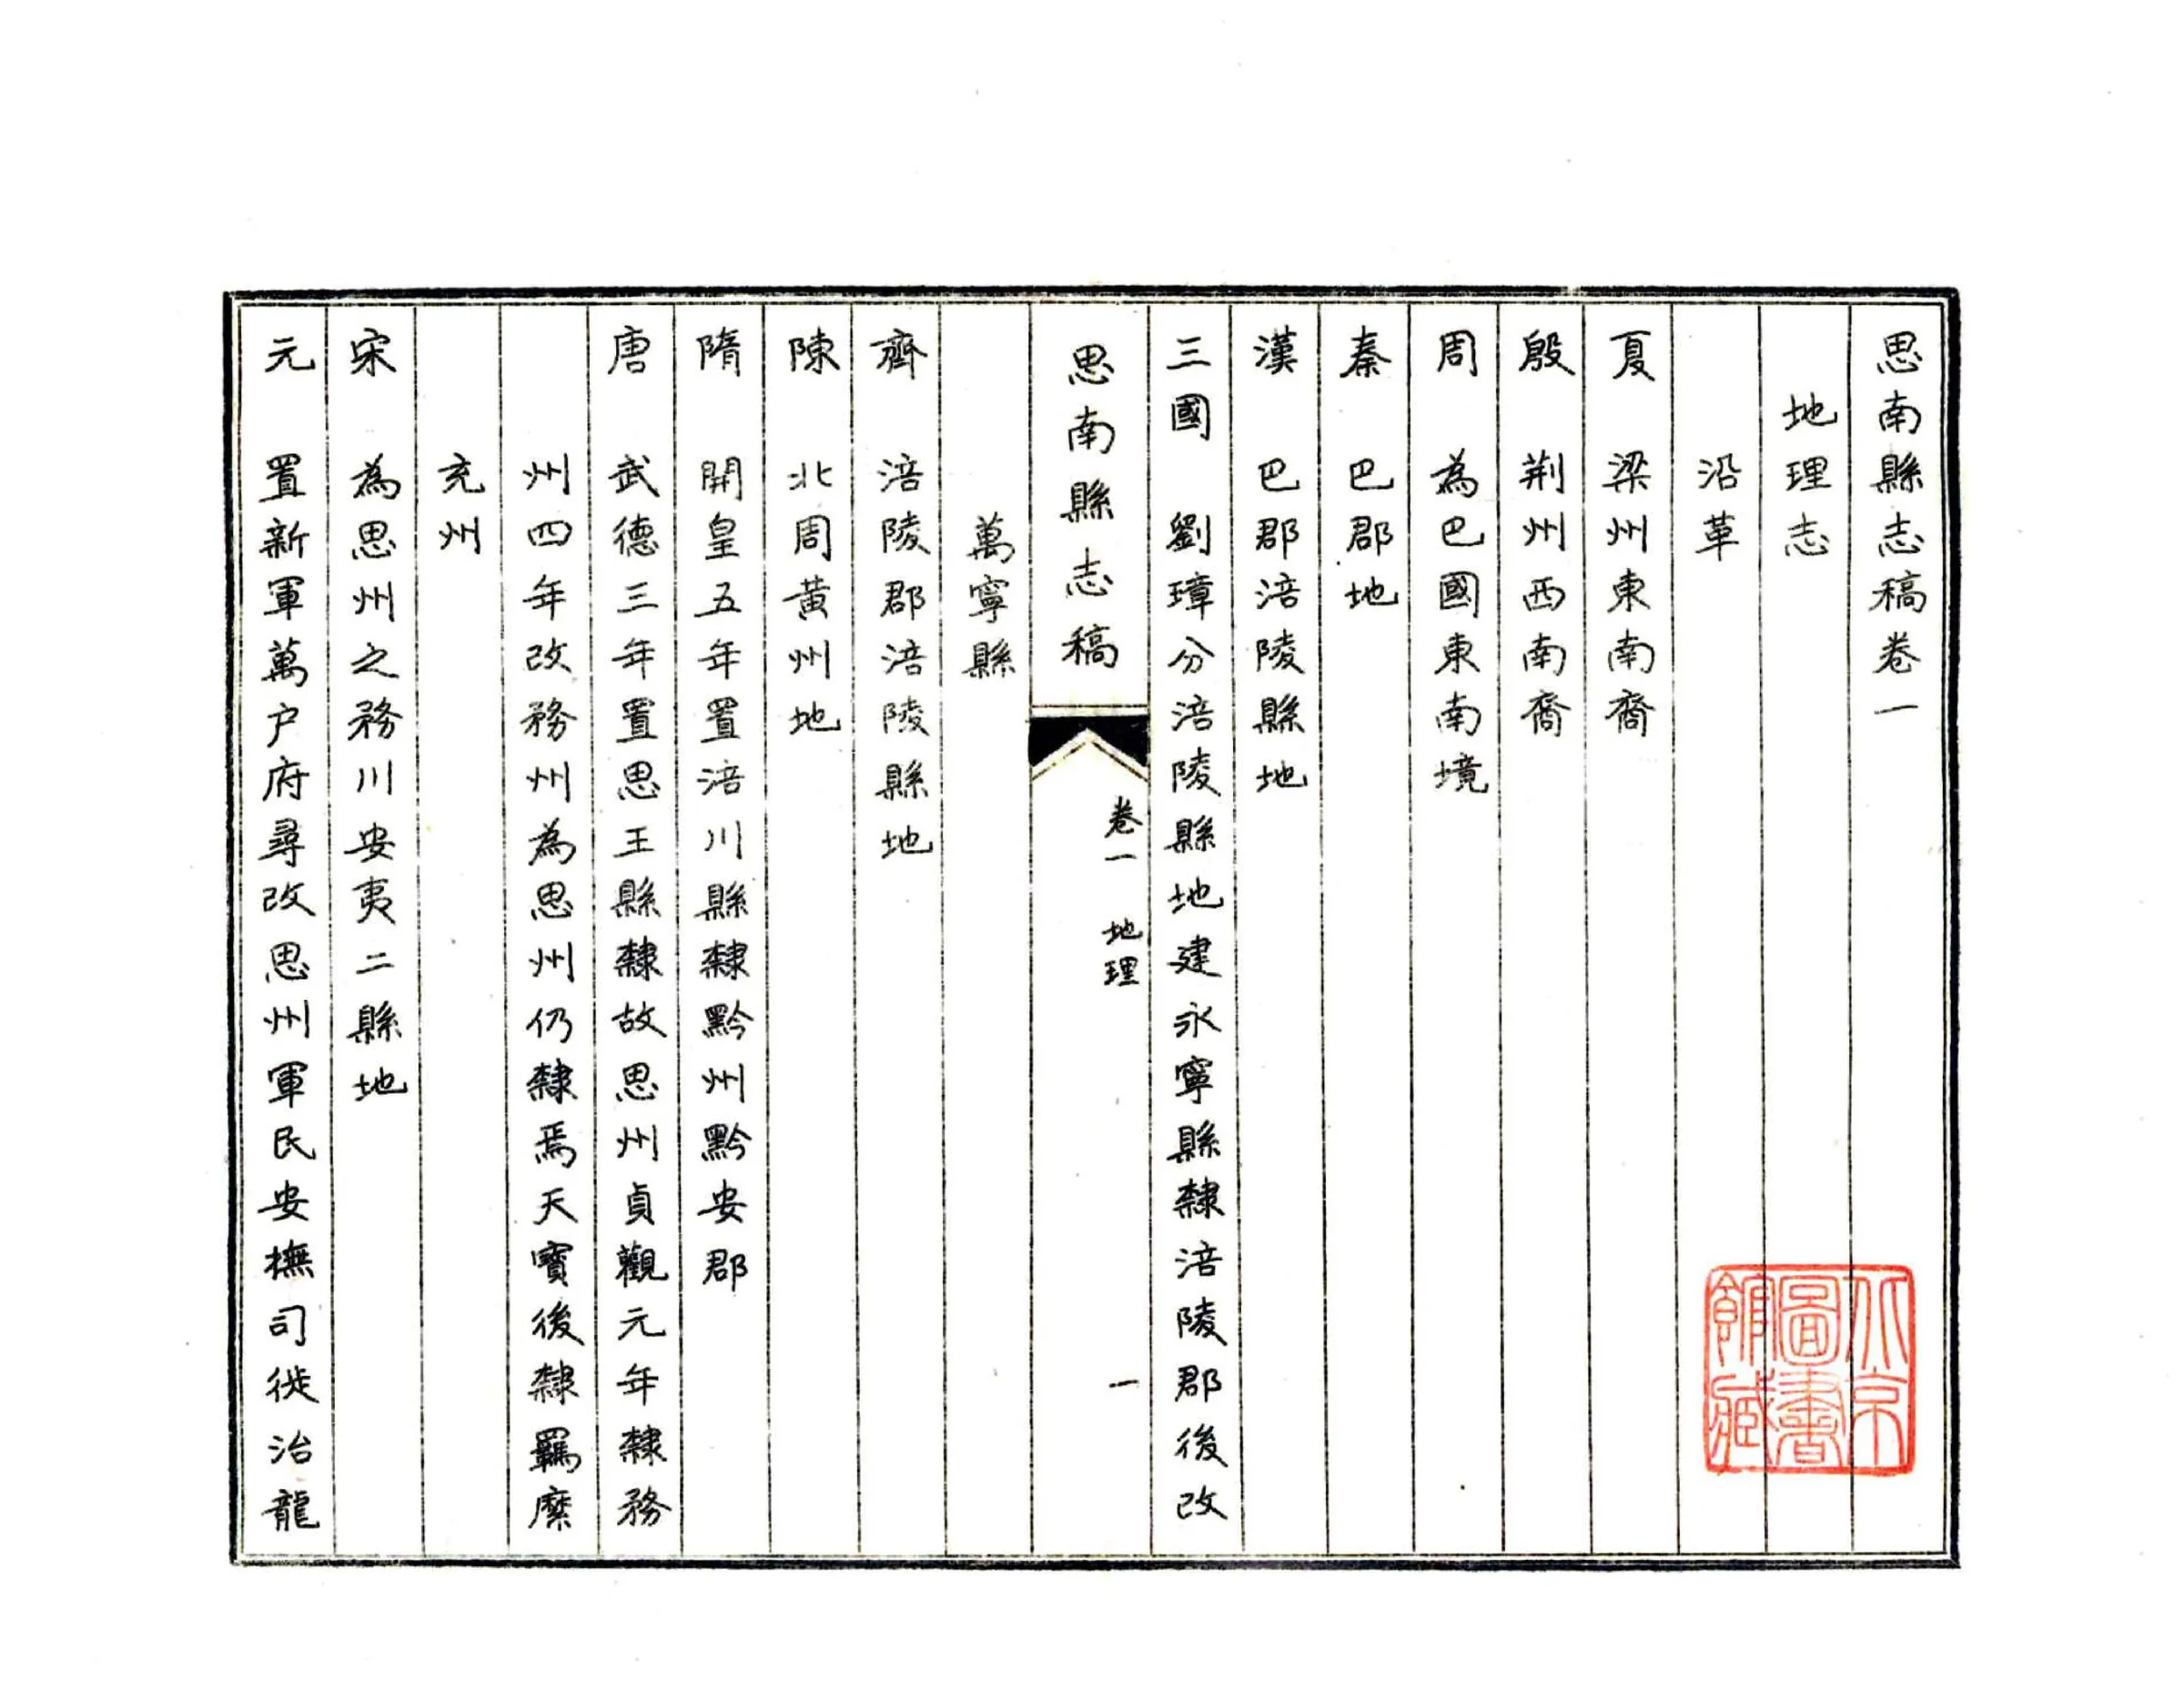 思南縣志稿卷一
地理志
沿革
夏　梁州東南裔
殷　荆州西南裔
周　為巴國東南境
秦　巴郡地
漢　巴郡涪陵縣地
三國　劉璋分涪陵縣地建永寧縣隸涪陵郡後改
思南縣志稿　卷一　地理　一
萬寧縣
齊　涪陵郡涪陵縣地
陳　北周黃州地
隋　開皇五年置涪川縣隸黔州黔安郡
唐　武德三年置思王縣隸故思州貞觀元年隸務
州四年改務州為思州仍隸焉天寶後隸羈縻
充州
宋　為思州之務川安夷二縣地
元　置新軍萬户府尋改思州軍民安撫司徙治龍
北京
圖書
館藏